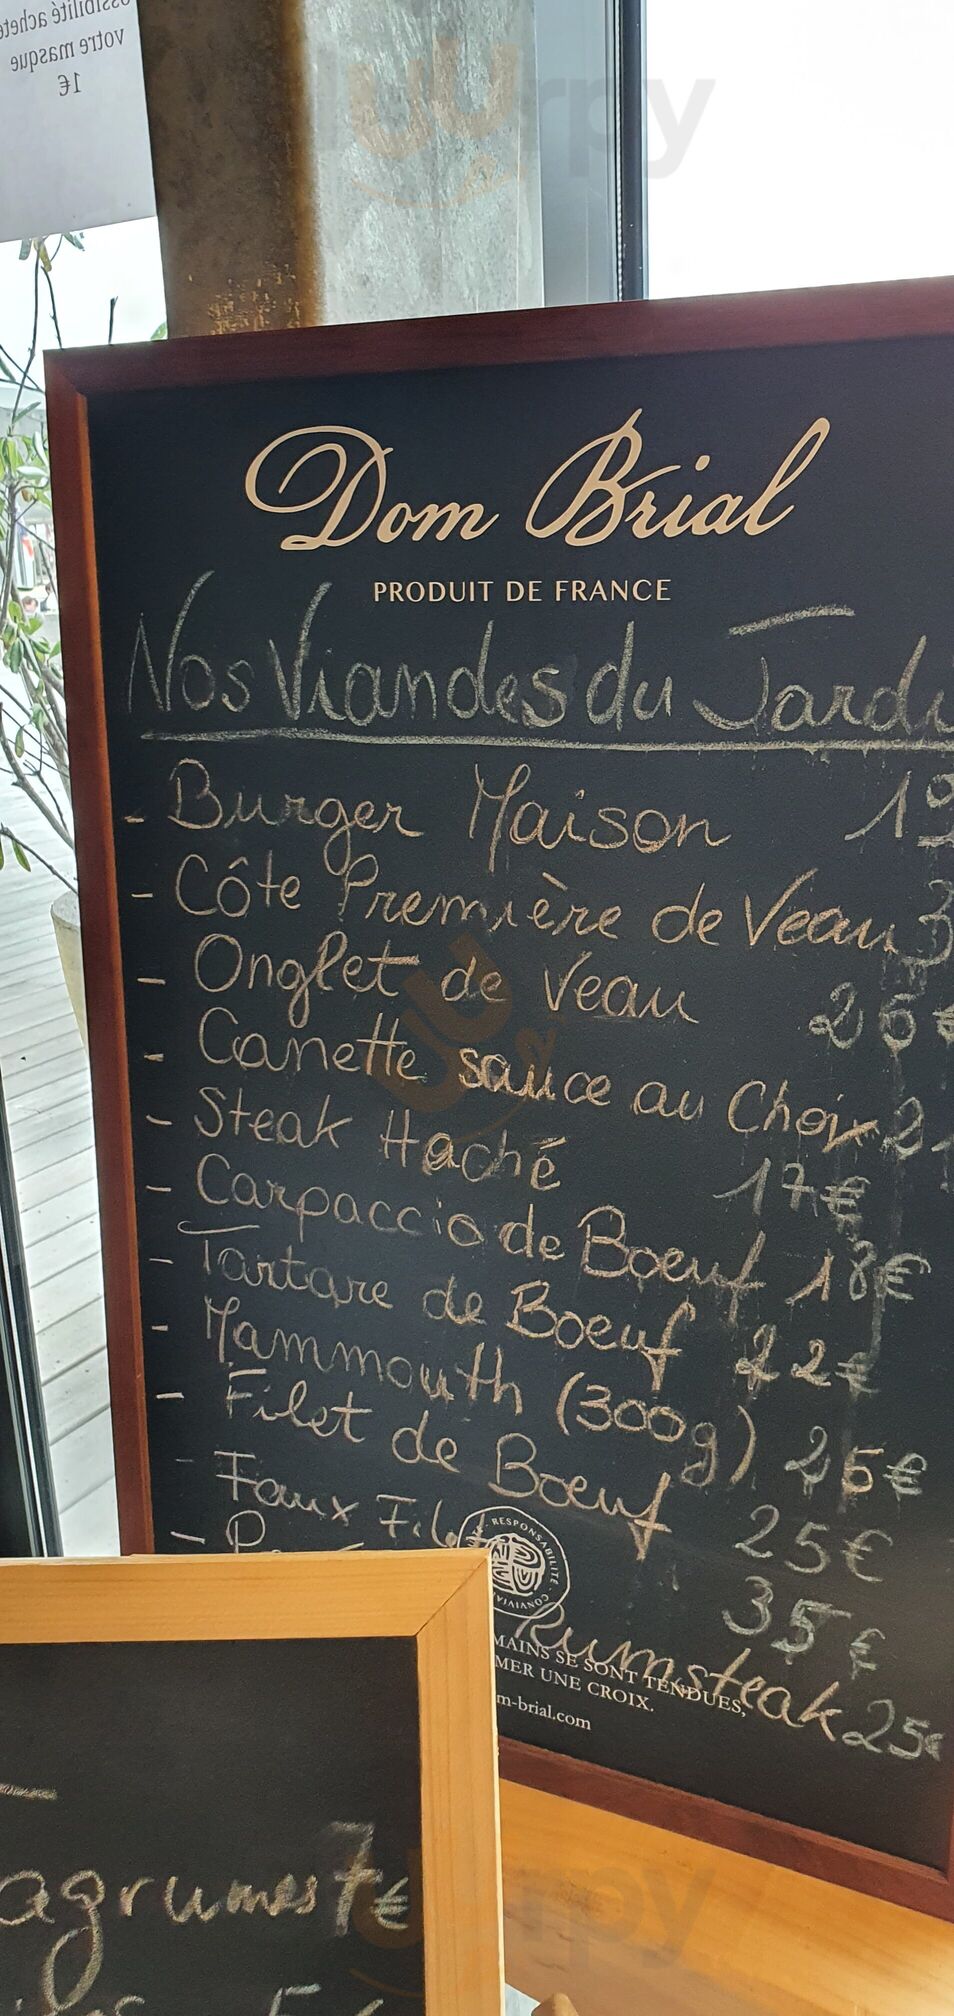 votre masque
1€
Dom Brial
PRODUIT DE FRANCE
Nos Viandes du Jardi
- Burger Maison 19
- Côte Première de Veau 3
- Onglet de Veau 26€
- Canette sauce au Choix 2
- Steak Haché 17€
- Carpaccio de Boeuf 18€
- Tartare de Boeuf 22€
- Mammouth (300g) 25€
- Filet de Boeuf 25€
- Faux Filet 35€
RESPONSABILITÉ
Rumsteak 25€
MAINS SE SONT TENDUES,
MER UNE CROIX.
m-brial.com
agrumes 7€